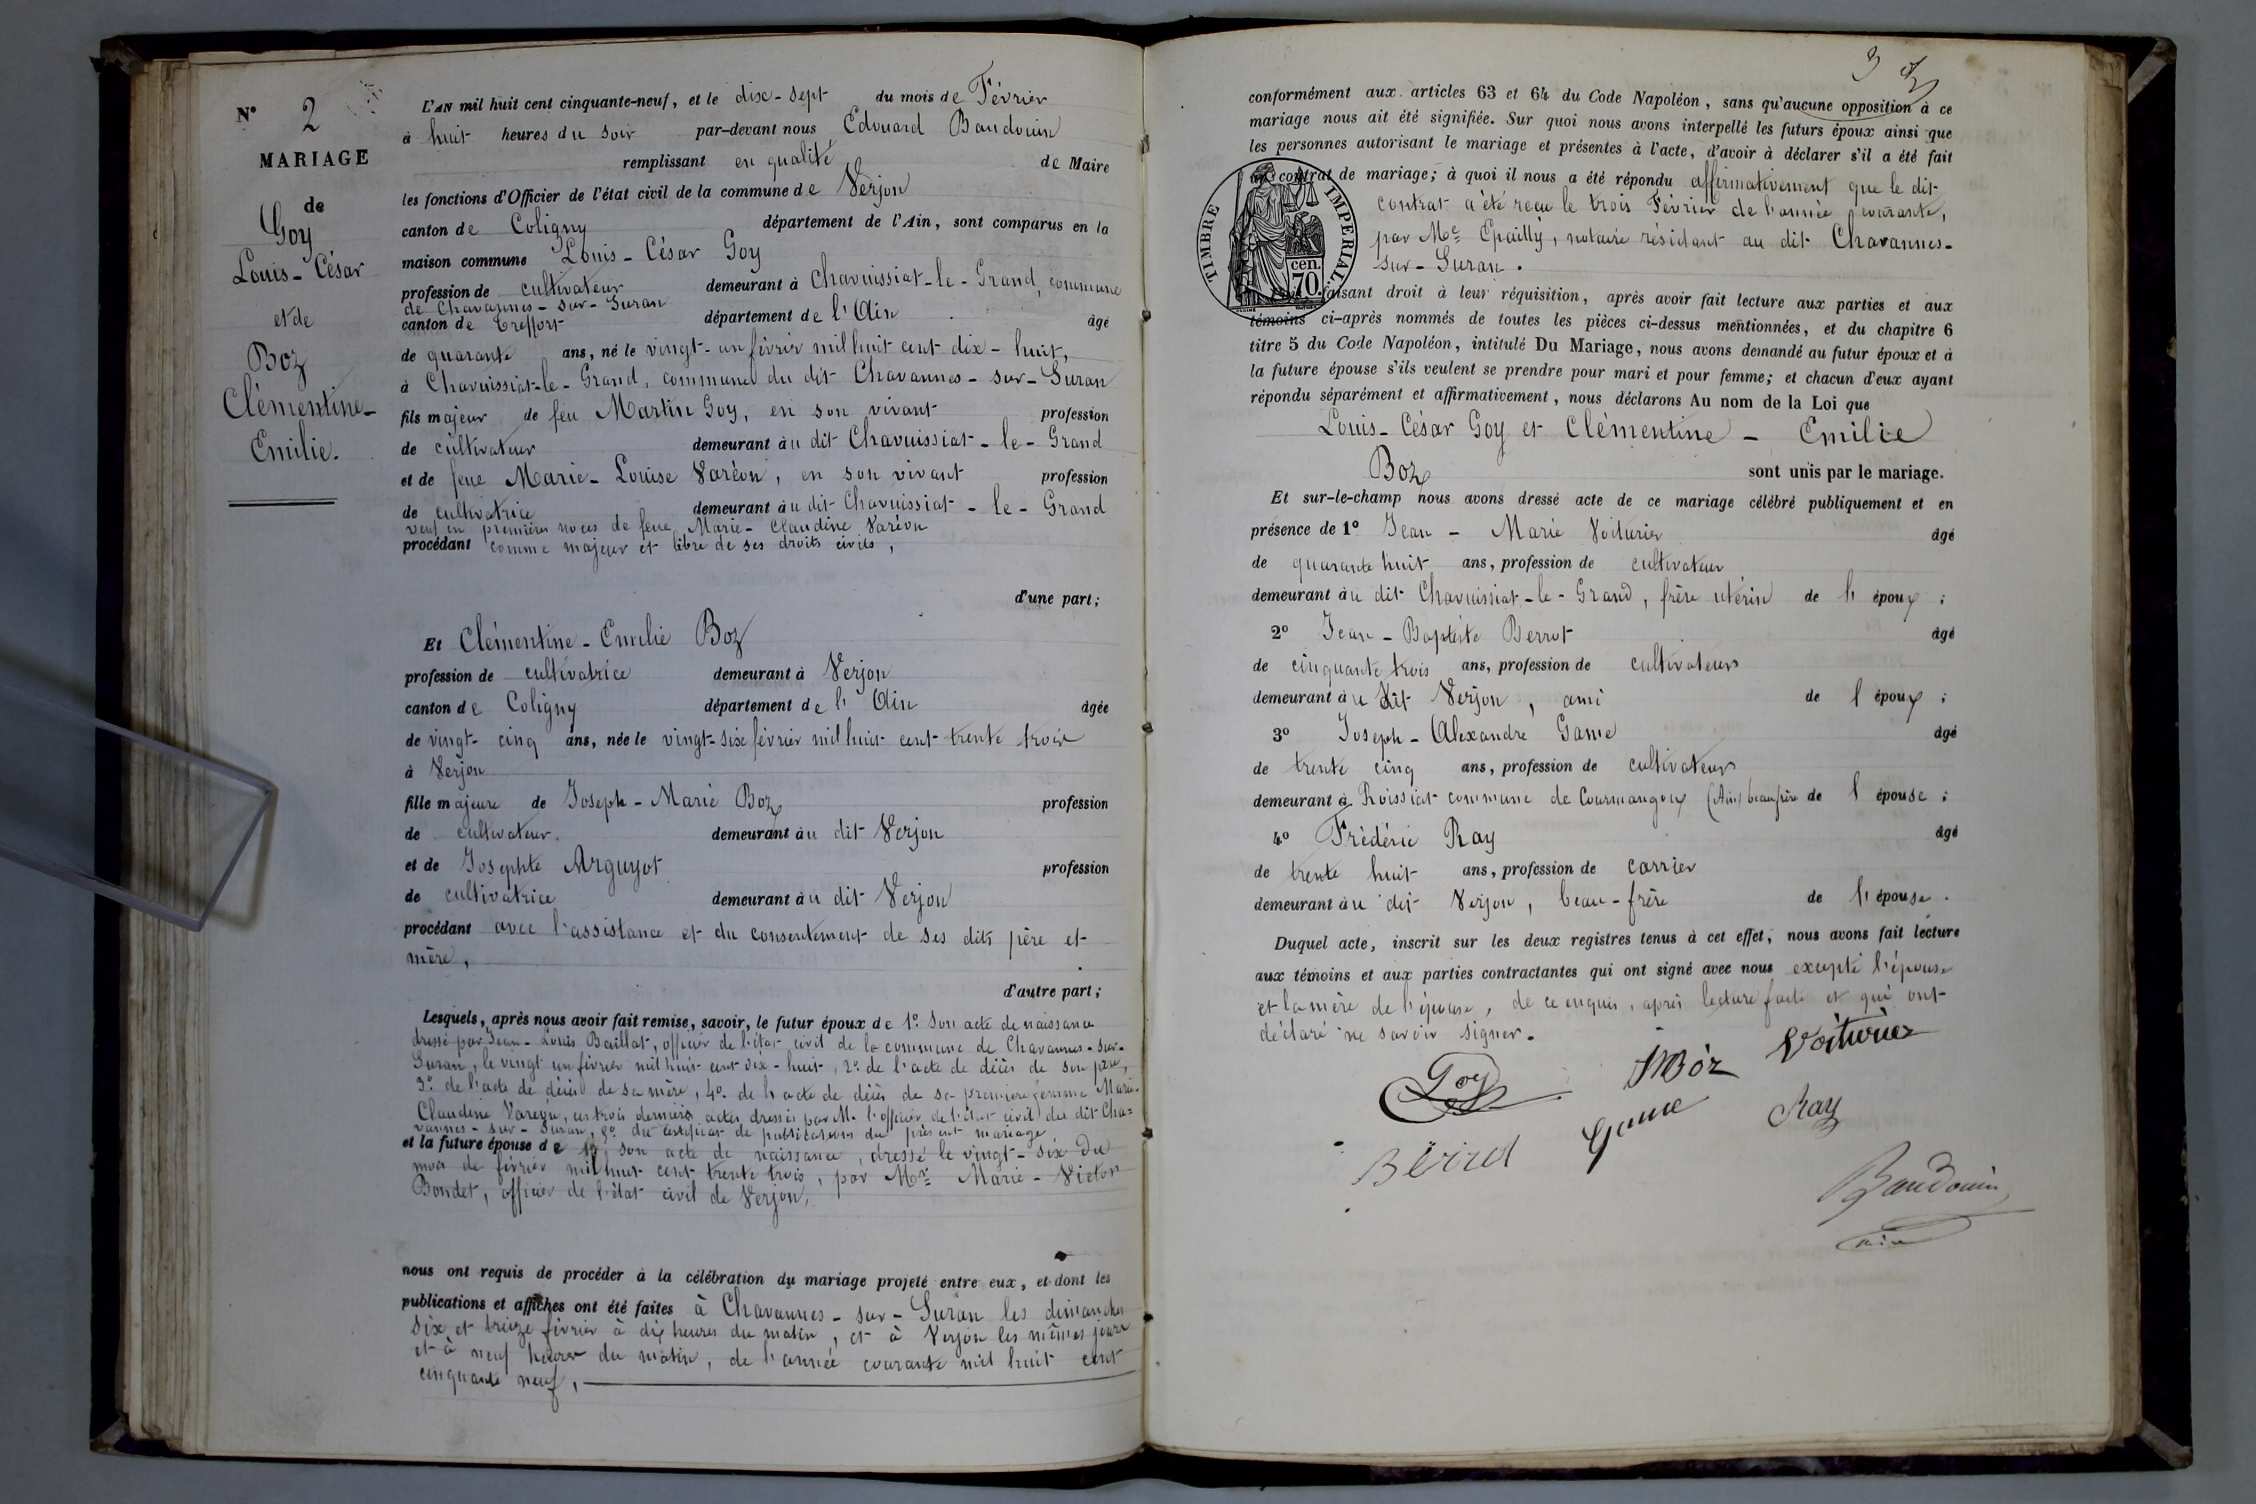 N° 2
MARIAGE
de
Goy
Louis-César
et de
Boz
Clémentine-
Emilie.
L'AN mil huit cent cinquante-neuf, et le dix-sept du mois de Février
à huit heures du soir par-devant nous Edouard Baudouin
remplissant en qualité de Maire
les fonctions d'Officier de l'état civil de la commune de Verjon
canton de Coligny département de l'Ain, sont comparus en la
maison commune Louis-César Goy
profession de cultivateur demeurant à Chavuissiat-le-Grand, commune
de Chavannes-sur-Suran
canton de Treffort département de l'Ain âgé
de quarante ans, né le vingt-un février mil huit cent dix-huit,
à Chavuissiat-le-Grand, commune du dit Chavannes-sur-Suran
fils majeur de feu Martin Goy, en son vivant profession
de cultivateur demeurant au dit Chavuissiat-le-Grand
et de feue Marie-Louise Varéon, en son vivant profession
de cultivatrice demeurant au dit Chavuissiat-le-Grand
veuf en premières noces de feue Marie-Claudine Varéon
procédant comme majeur et libre de ses droits civils,
d'une part;
Et Clémentine-Emilie Boz
profession de cultivatrice demeurant à Verjon
canton de Coligny département de l'Ain âgée
de vingt-cinq ans, née le vingt-six février mil huit cent trente trois
à Verjon
fille majeure de Joseph-Marie Boz profession
de cultivateur. demeurant au dit Verjon
et de Josephte Arguyot profession
de cultivatrice demeurant au dit Verjon
procédant avec l'assistance et du consentement de ses dits père et
mère,
d'autre part;
Lesquels, après nous avoir fait remise, savoir, le futur époux de 1°. Son acte de naissance
dressé par Jean-Louis Baillat, officier de l'état civil de la commune de Chavannes-sur-
Suran, le vingt un février mil huit cent dix-huit, 2°. de l'acte de décès de son père,
3°. de l'acte de décès de sa mère, 4°. de l'acte de décès de sa première femme Marie-
Claudine Vareon, ces trois derniers actes dressés par M. l'officier de l'état civil du dit Cha=
vannes-sur-Suran, 5°. du certificat de publications du présent mariage
et la future épouse de son acte de naissance, dressé le vingt-six du
mois de février mil huit cent trente trois, par Mr. Marie-Victor
Bondet, officier de l'état civil de Verjon,
nous ont requis de procéder à la célébration du mariage projeté entre eux, et dont les
publications et affiches ont été faites à Chavannes-sur-Suran les dimanches
six et treize février à dix heures du matin, et à Verjon les mêmes jours
et à neuf heures du matin, de l'année courante mil huit cent
cinquante neuf,
3
conformément aux articles 63 et 64 du Code Napoléon, sans qu'aucune opposition à ce
mariage nous ait été signifiée. Sur quoi nous avons interpellé les futurs époux ainsi que
les personnes autorisant le mariage et présentes à l'acte, d'avoir à déclarer s'il a été fait
un contrat de mariage; à quoi il nous a été répondu affirmativement que le dit
contrat a été reçu le trois Février de l'année courante,
par Me. Epailly, notaire résidant au dit Chavannes-
sur-Suran.
TIMBRE IMPERIAL
cen.
70.
faisant droit à leur réquisition, après avoir fait lecture aux parties et aux
témoins ci-après nommés de toutes les pièces ci-dessus mentionnées, et du chapitre 6
titre 5 du Code Napoléon, intitulé Du Mariage, nous avons demandé au futur époux et à
la future épouse s'ils veulent se prendre pour mari et pour femme; et chacun d'eux ayant
répondu séparément et affirmativement, nous déclarons Au nom de la Loi que
Louis-César Goy et Clémentine-Emilie
Boz sont unis par le mariage.
Et sur-le-champ nous avons dressé acte de ce mariage célébré publiquement et en
présence de 1° Jean-Marie Voiturier âgé
de quarante huit ans, profession de cultivateur
demeurant au dit Chavuissiat-le-Grand, frère utérin de l'époux;
2° Jean-Baptiste Berrot âgé
de cinquante trois ans, profession de cultivateur
demeurant au dit Verjon, ami de l'époux;
3° Joseph-Alexandre Game âgé
de trente cinq ans, profession de cultivateur
demeurant à Roissiat commune de Courmangoux (Ain) beau frère de l'épouse;
4° Frédéric Ray âgé
de trente huit ans, profession de carrier
demeurant au dit Verjon, beau-frère de l'épouse.
Duquel acte, inscrit sur les deux registres tenus à cet effet, nous avons fait lecture
aux témoins et aux parties contractantes qui ont signé avec nous excepté l'épouse
et la mère de l'épouse, de ce enquis, après lecture faite et qui ont
déclaré ne savoir signer.
Goy JMBoz Voiturier
Game Ray
Baudouin